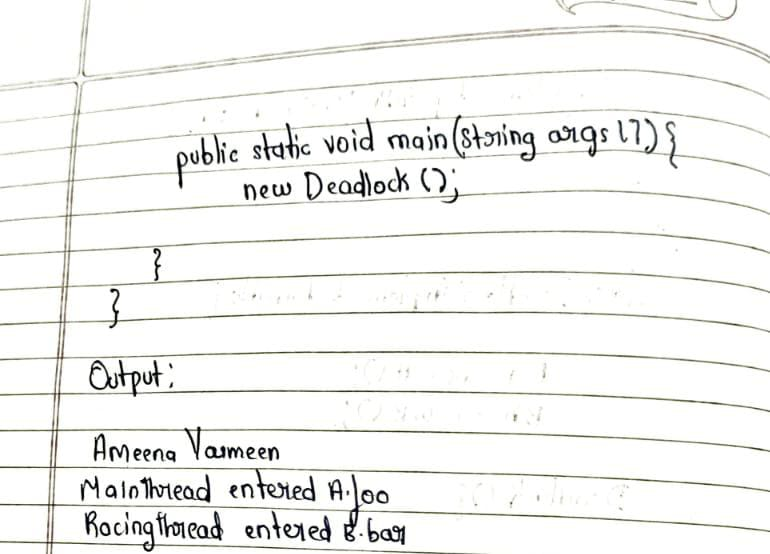 public static void main(String args[]){
new Deadlock ();
}
}
Output:
Ameena Yasmeen
MainThread entered A.foo
Racingthread entered B.bar